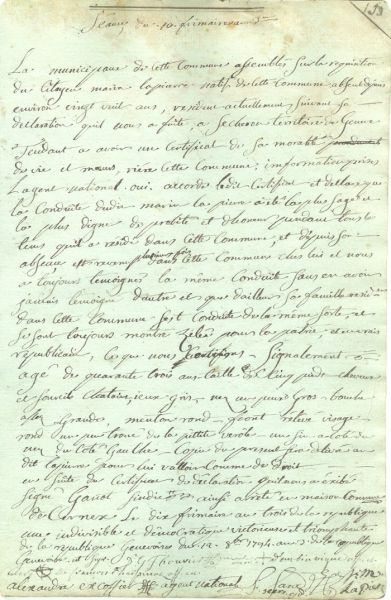 Séance du 10 frimaire an 3me
La municipauté de cette Commune assemblés Sur la requisition
du Citoyen marin lapierre natif de cette Commune absent depuis
environ vingt uuit ans, residant actuellement Suivant sa
declaration quil nous a faite, a Secheron territoire de Geneve
Tendant a avoir un Certificat de Sa morable
de vie et mœurs, riere cette Commune; information prises
Lagent national oui. accorde ledit Certificat et declare que
la Conduite dudit marin la pierre a été la plus Sage et
la plus digne de probité et dhoneur pendant tous le
tems quil a resté dans cette Commune, et depuis son
absence est revenu plusieurs fois dans cette Commune chez lui et nous
a toujours temoignés la même Conduite Sans en avoir
jamais temoigné dautre et que dailleur Sa famille residente
dans cette Commune Sest Conduite de la même Sorte, et
Se Sont toujours montré Zelés pour la patrie et en vrais
republicain, Ce que nous Certifions - Signalement
agé de quarante trois ans taille de Cinq pieds cheveux
et Sourcils Chatains, ieux gris, nez un peu Gros - bouche
assez Grande, menton rond - front relevé visage
rond un peu troué de la petitte verole un Sin a lob du
nez du Coté Gauche - Copie du present Sera delivré au
dit Lapierre pour lui valloir Comme de Droit
en Suite du Certificat de declaration quil nous a exibé
Signé Gaviot Sindic &c ainsi areté en maison Commune
de Cernex Le dix frimaire an trois de la republique
une indivisible et democratique victorieuse et triomphante
de la republique Genevoise du 12 8bre 1794. 3 de la republique
alexandre excoffier agent national